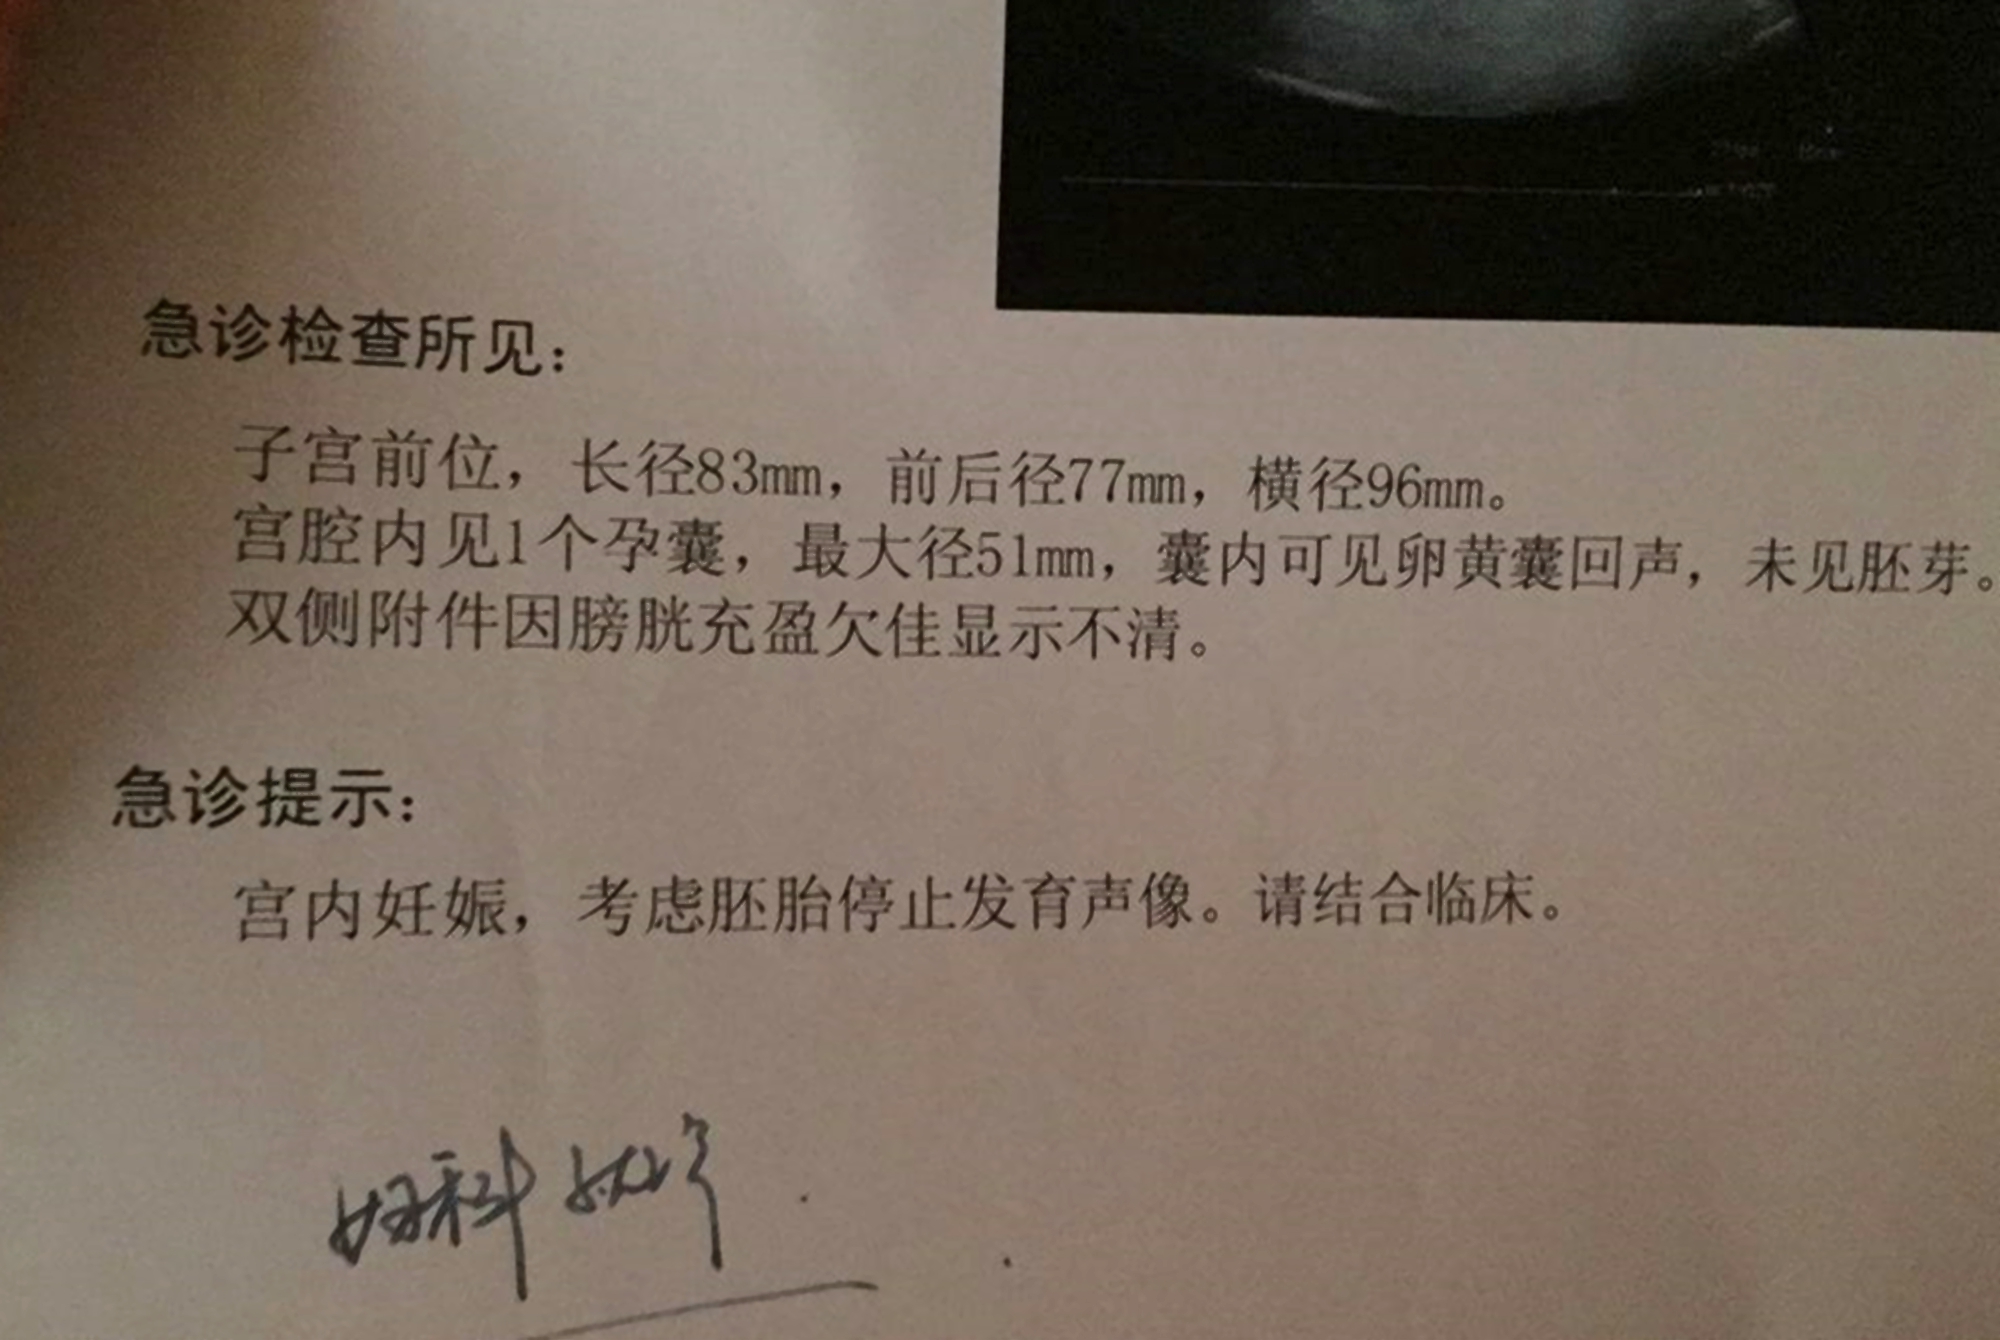 急诊检查所见：
子宫前位，长径83mm，前后径77mm，横径96mm。
宫腔内见1个孕囊，最大径51mm，囊内可见卵黄囊回声，未见胚芽。
双侧附件因膀胱充盈欠佳显示不清。
急诊提示：
宫内妊娠，考虑胚胎停止发育声像。请结合临床。
妇科就诊